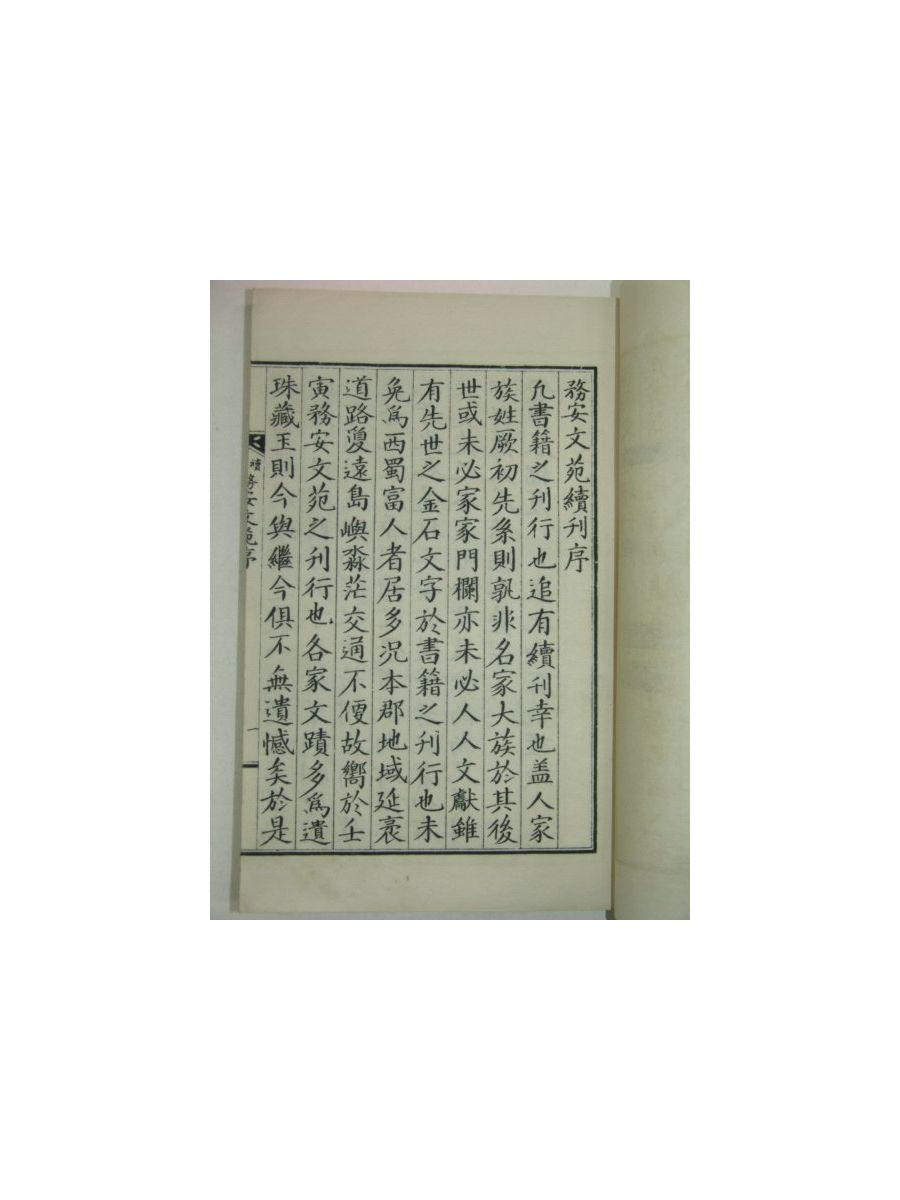 務安文苑續刊序
凡書籍之刊行也追有續刊幸也盖人家
族姓厥初先系則孰非名家大族於其後
世或未必家家門欄亦未必人人文獻雖
有先世之金石文字於書籍之刊行也未
免爲西蜀富人者居多况本郡地域延袤
道路敻遠島嶼淼茫交通不便故嚮於壬
寅務安文苑之刊行也各家文蹟多爲遺
珠藏玉則今與繼今俱不無遺憾矣於是
續務安文苑序
一